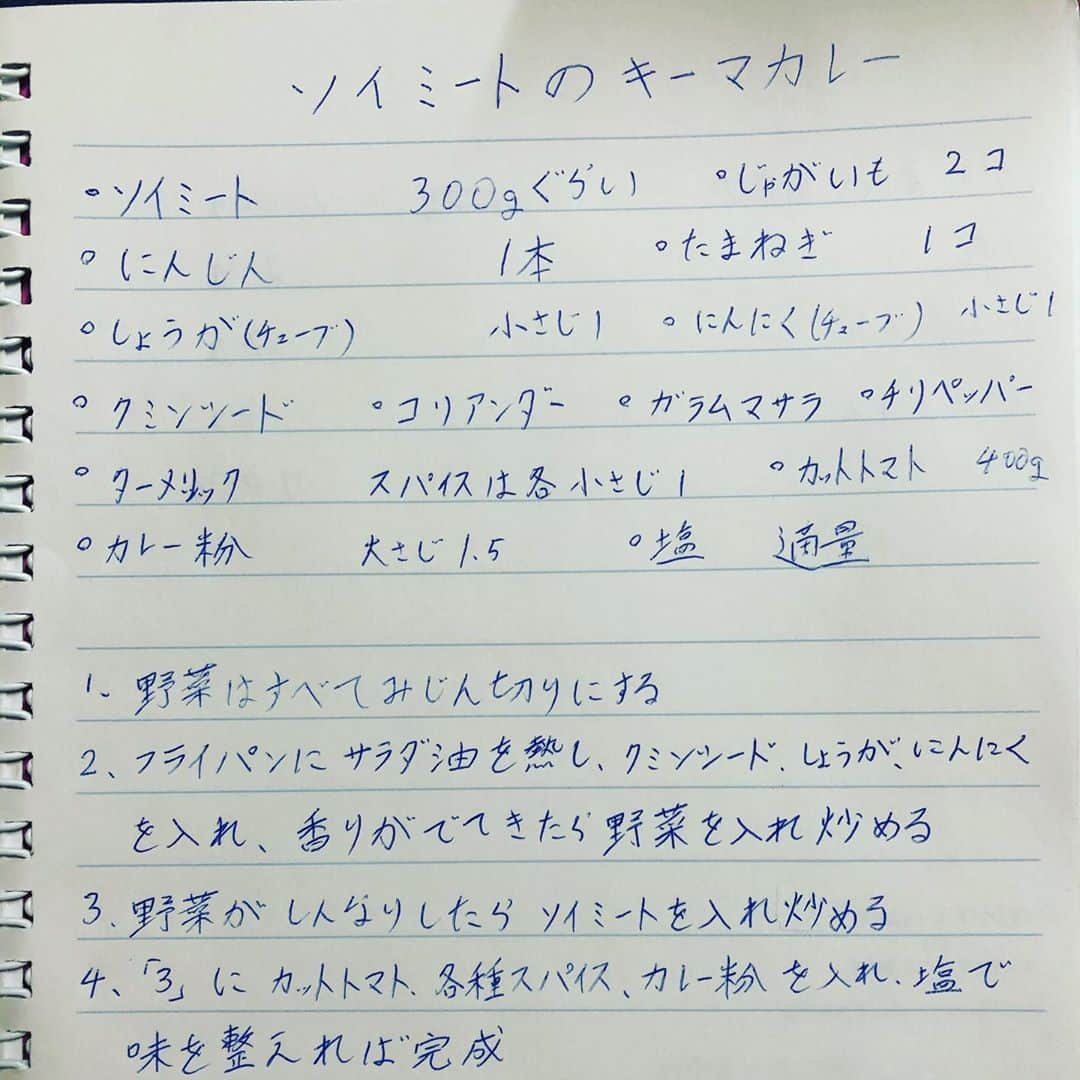 ソイミートのキーマカレー
◦ソイミート 300gぐらい ◦じゃがいも 2コ
◦にんじん 1本 ◦たまねぎ 1コ
◦しょうが(チューブ) 小さじ1 ◦にんにく(チューブ) 小さじ1
◦クミンシード ◦コリアンダー ◦ガラムマサラ ◦チリペッパー
◦ターメリック スパイスは各小さじ1 ◦カットトマト 400g
◦カレー粉 大さじ1.5 ◦塩 適量
1、野菜はすべてみじん切りにする
2、フライパンにサラダ油を熱し、クミンシード、しょうが、にんにく
を入れ、香りがでてきたら野菜を入れ炒める
3、野菜がしんなりしたらソイミートを入れ炒める
4、「3」にカットトマト、各種スパイス、カレー粉を入れ、塩で
味を整えれば完成